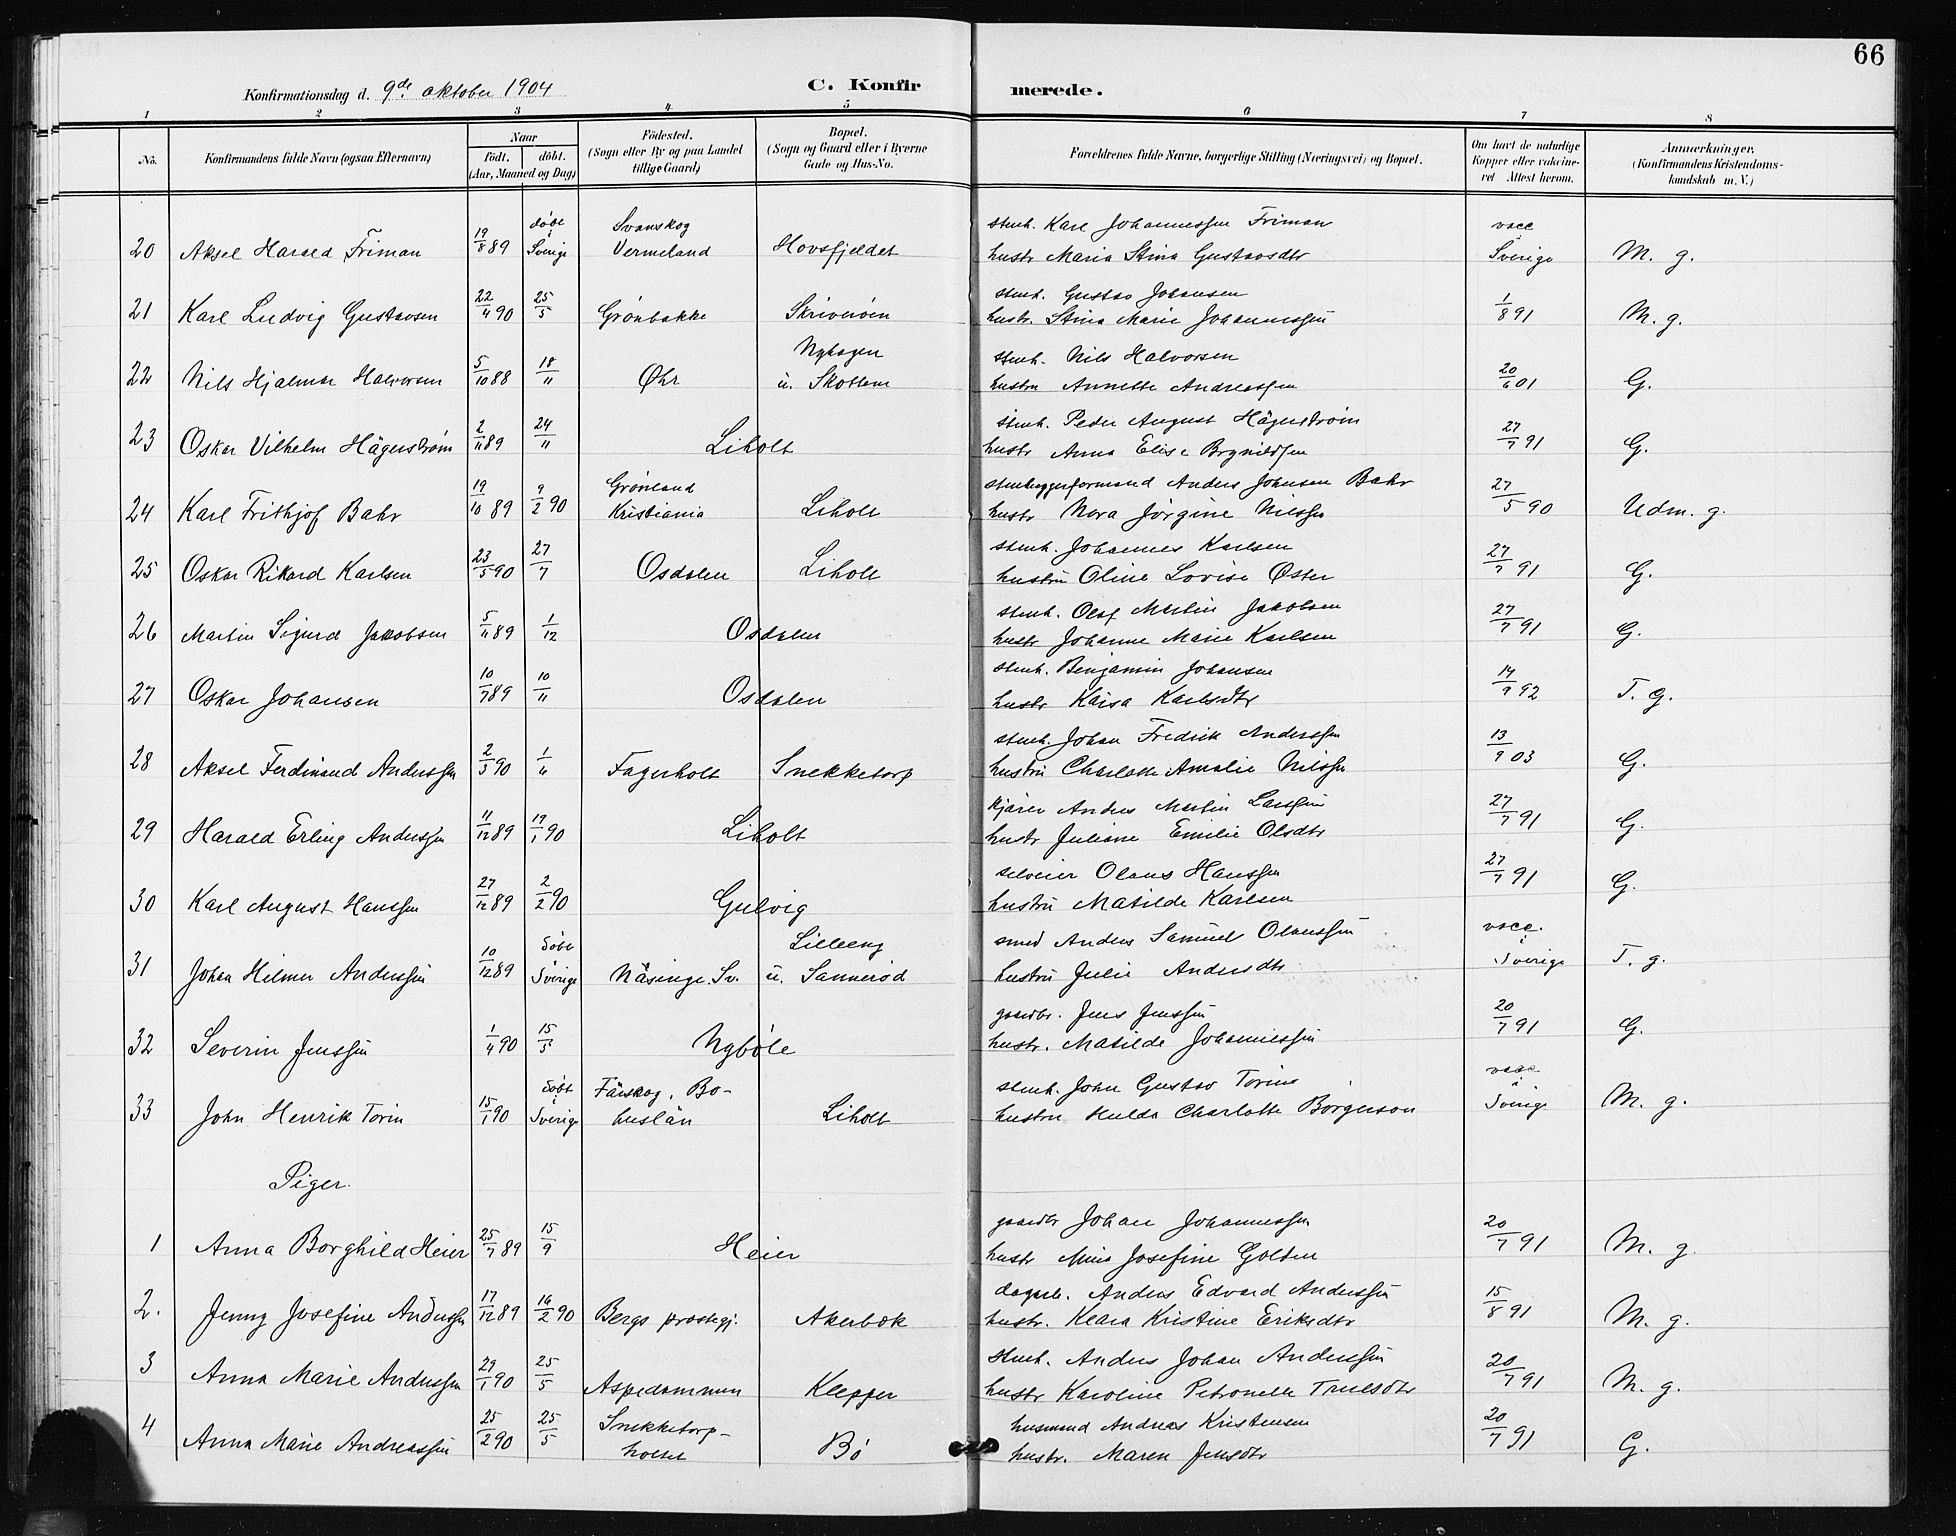 66
Konfirmationsdag d. 9de oktober 1904 C. Konfirmerede.
1 2 3 4 5 6 7 8
No. Konfirmandens fulde Navn (ogsaa Efternavn) Naar født. døbt. (Aar, Maaned og Dag) Fødested. (Sogn eller By og paa Landet tillige Gaard) Bopæl. (Sogn og Gaard eller i Byerne Gade og Hus-No. Forældrenes fulde Navne, borgerlige Stilling (Næringsvei) og Bopæl. Om havt de naturlige Kopper eller vakcineret Attest herom. Anmærkninger. (Konfirmandens Kristendomskundskab m. V.)
døbt Svanskog stenh. Karl Johannessen Friman vacc
20 Aksel Harald Friman 19/8 89 i Sverige Vermeland Hovsfjeldet hustr Maria Stina Gustavsdtr i Sverige M. g.
stenh. Gustav Johansen
21 Karl Ludvig Gustavsen 22/4 90 25/5 Grönbakke Skriveröen hustr. Stina Marie Johannessen 1/8 91 M. g.
Nyhagen stenh. Nils Halvorsen
22 Nils Hjalmar Halvorsen 5/10 88 18/11 Øhr u. Skottene hustru Annette Andreassen 20/6 01 G.
stenh. Peder August Hägerström
23 Oskar Vilhelm Hägerström 2/11 89 24/11 Liholt hustr Anna Elise Brynildsen 27/7 91 G.
Grönland stenhuggerformand Anders Johnsen Bahr
24 Karl Frithjof Bahr 19/10 89 9/2 90 Kristiania Liholt hustr Nora Jørgine Nilssen 27/5 90 Udm. g.
stenh. Johannes Karlsen
25 Oskar Rikard Karlsen 23/5 90 27/7 Osdalen Liholt hustru Oline Lovise Øster 27/7 91 G.
stenh. Olaf Martin Jakobsen
26 Martin Sigurd Jakobsen 5/11 89 1/12 Osdalen hustr Johanne Marie Karlsen 27/7 91 G.
stenh. Benjamin Johansen
27 Oskar Johansen 10/7 89 10/11 Osdalen hustr Kaisa Karlsdtr 14/9 92 T. g.
stenh. Johan Fredrik Anderssen
28 Aksel Ferdinand Anderssen 2/5 90 1/11 Fagerholt Snekketorp hustru Charlotte Amalie Nilssen 13/9 03 G.
kjører Anders Martin Larssen
29 Harald Erling Anderssen 11/12 89 19/1 90 Liholt hustr Juliane Emilie Olsdtr 27/7 91 G.
selveier Olaus Hanssen
30 Karl August Hanssen 27/12 89 2/2 90 Gulvig hustru Matilde Karlsen 27/7 91 G.
døbt Lilleeng smed Anders Samuel Olaussen vacc.
31 Johan Hilmer Anderssen 10/12 89 i Sverige Näsinge. Sv. u. Sannerød hustru Julie Andersdtr i Sverige T. g.
gaardbr. Jens Jenssen
32 Severin Jenssen 1/4 90 15/5 Nybøle hustr. Matilde Johannessen 20/7 91 G.
døbt Färskog, Bo- stenh. John Gustav Torin vacc
33 John Henrik Torin 15/1 90 i Sverige huslän Liholt hustru Hulda Charlotte Borgerson i Sverige M. g.
Piger.
gaardbr Johan Johannessen
1 Anna Borghild Heier 25/7 89 15/9 Heier hustr Josefine Golden 20/7 91 M. g.
dagarb. Anders Edvard Anderssen
2. Jenny Josefine Anderssen 17/12 89 16/2 90 Bergs prestegj. Akerbæk hustr. Klara Kristine Eriksdtr 15/8 91 M. g.
stenh. Anders Johan Anderssen
3 Anna Marie Anderssen 29/1 90 25/5 Aspedammen Klepper hustr Karoline Petronelle Trulsdtr 20/7 91 M. g.
Snekketorp- husmand Andreas Kristensen
4 Anna Marie Andreassen 25/2 90 25/5 holtet Bø hustr. Maren Jensdtr 20/7 91 G.